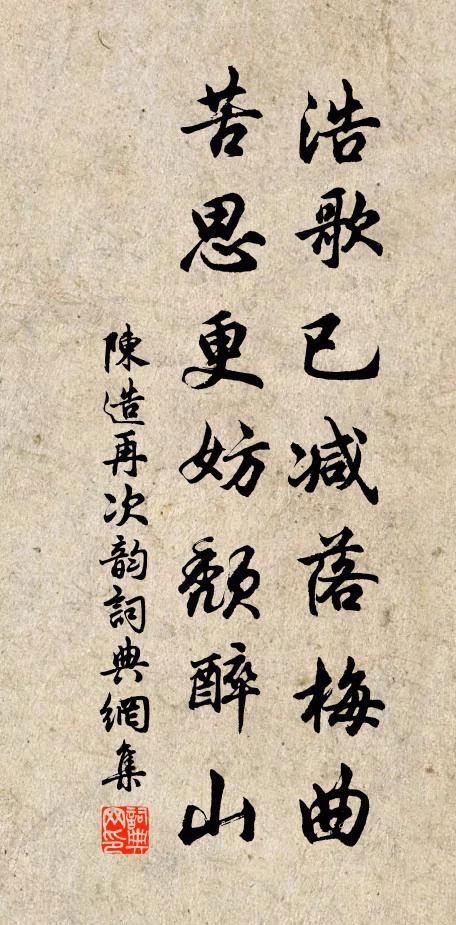 浩歌已减落梅曲
苦思更妨頹醉山
陳造再次韵詞典網集
詞典網印